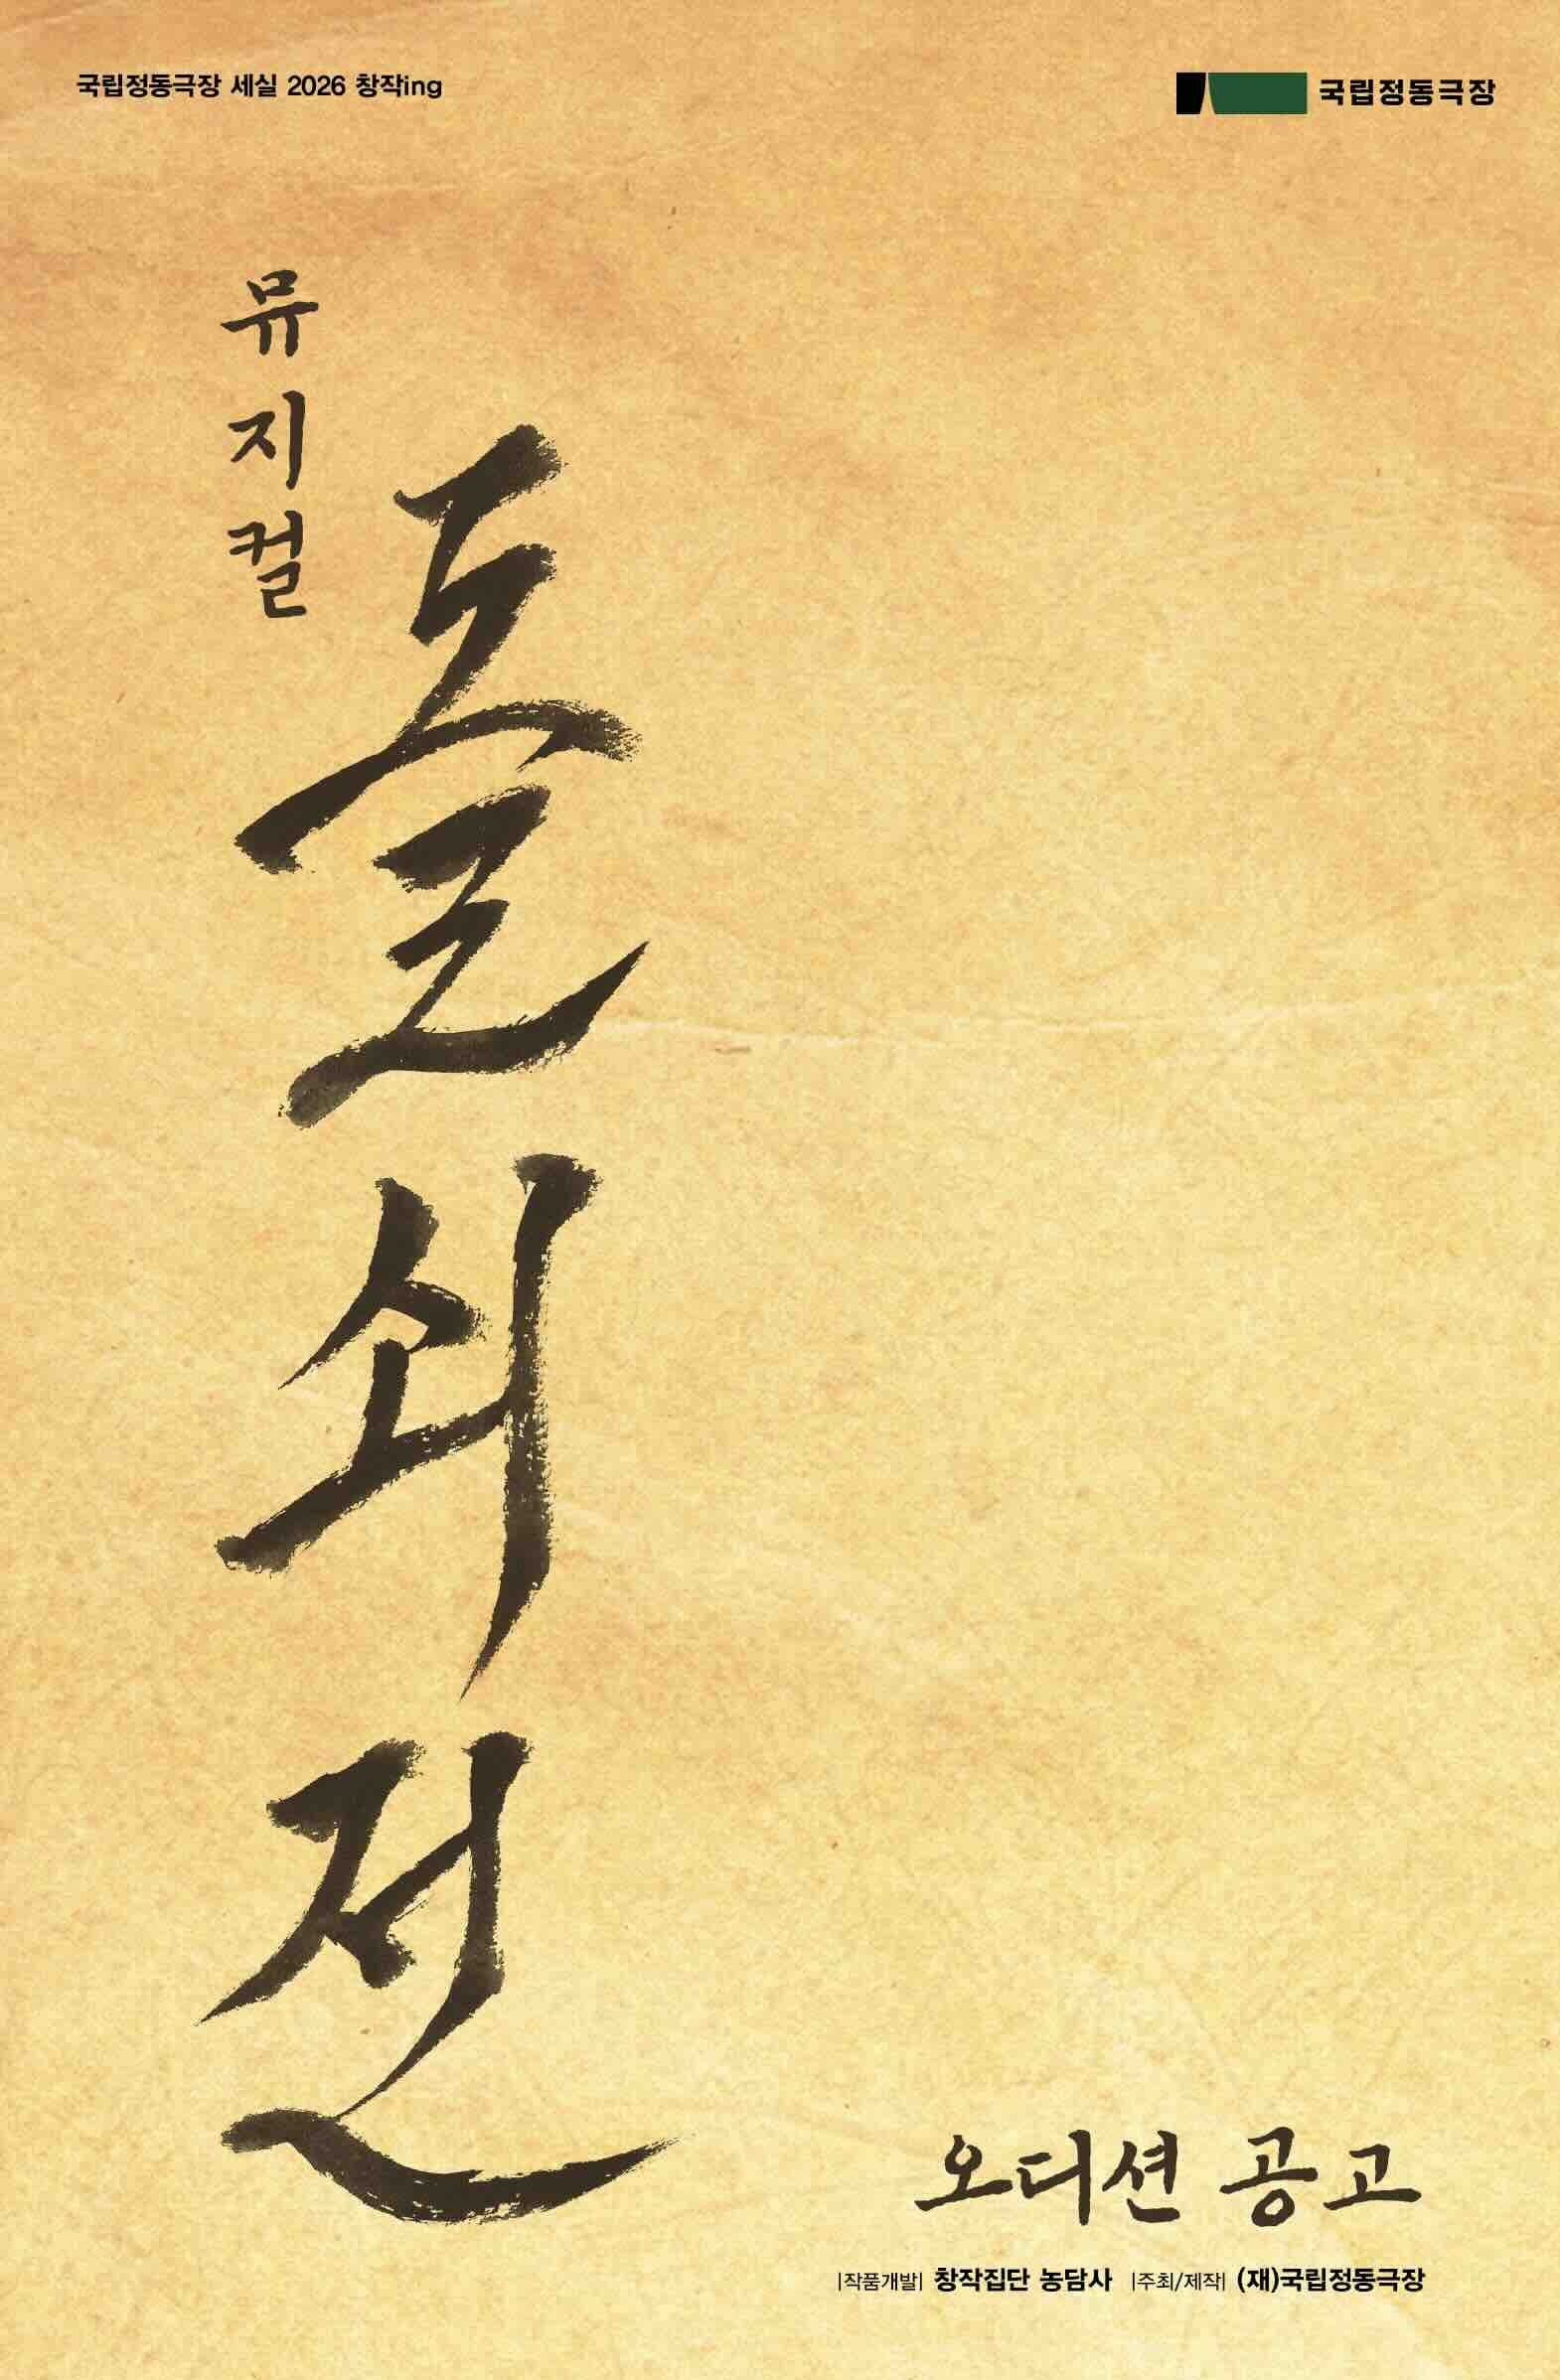 국립정동극장 세실 2026 창작ing
국립정동극장
뮤지컬
돌쇠전
오디션 공고
|작품개발| 창작집단 농담사 |주최/제작| (재)국립정동극장